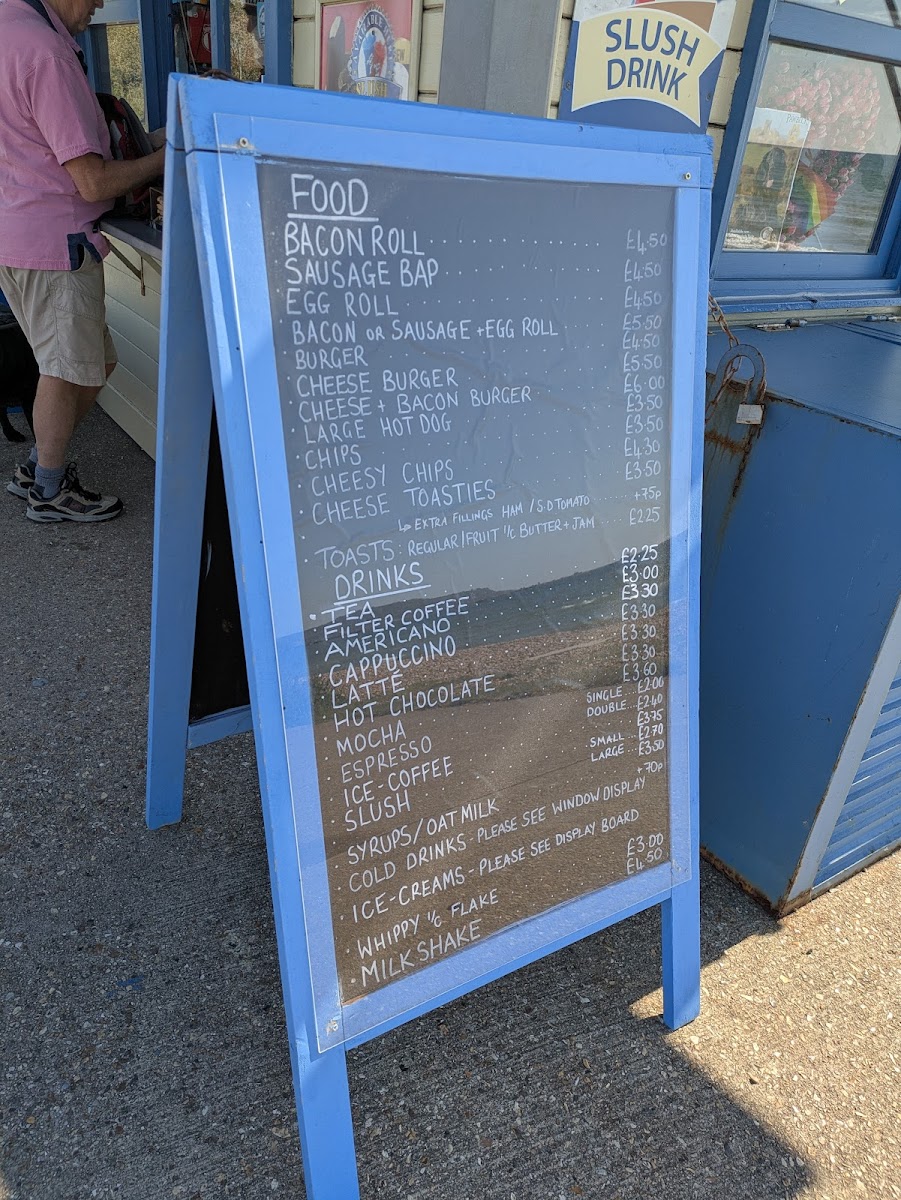 SLUSH
DRINK
FOOD
· BACON ROLL £4.50
· SAUSAGE BAP £4.50
· EGG ROLL £4.50
· BACON OR SAUSAGE + EGG ROLL £5.50
· BURGER £4.50
· CHEESE BURGER £5.50
· CHEESE + BACON BURGER £6.00
· LARGE HOT DOG £3.50
· CHIPS £3.50
· CHEESY CHIPS £4.30
· CHEESE TOASTIES £3.50
↳ EXTRA FILLINGS HAM / S.D TOMATO ..... +75p
· TOASTS : REGULAR / FRUIT ᵂ/c BUTTER + JAM ..... £2.25
DRINKS
· TEA £2.25
· FILTER COFFEE £3.00
· AMERICANO £3.30
· CAPPUCCINO £3.30
· LATTÉ £3.30
· HOT CHOCOLATE £3.30
· MOCHA £3.60
· ESPRESSO SINGLE ... £2.00
DOUBLE ... £2.40
· ICE-COFFEE £3.75
· SLUSH SMALL ... £2.70
LARGE ... £3.50
· SYRUPS / OAT MILK +70p
· COLD DRINKS - PLEASE SEE WINDOW DISPLAY
· ICE-CREAMS - PLEASE SEE DISPLAY BOARD
· WHIPPY ᵂ/c FLAKE £3.00
· MILKSHAKE £4.50